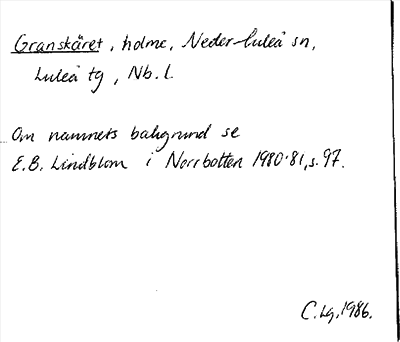 Granskäret, holme, Neder-Luleå sn,
Luleå tg, Nb. l.
Om namnets bakgrund se
E.B. Lindblom i Norrbotten 1980-81, s. 97.
C. Lg. 1986.